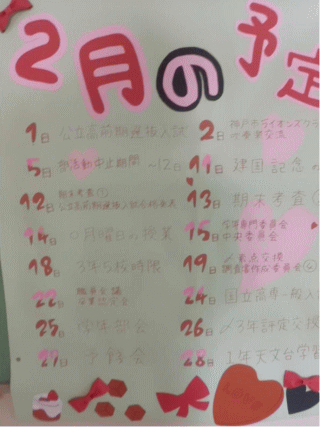 2月の予定
1日 公立高前期選抜入試
2日 神戸市ライオンズクラ
吹奏楽交流
5日 部活動中止期間 ~12日
11日 建国記念の
12日 期末考査①
公立高前期選抜入試合格発表
13日 期末考査
14日 月曜日の授業
15日 学年専門委員会
中央委員会
18日 3年5校時限
19日 〆素点交換
調査書作成委員会
22日 職員会議
卒業認定会
24日 国立高専一般入
25日 学年部会
26日 〆3年評定交換
27日 予餞会
28日 1年天文台学習
LOVE